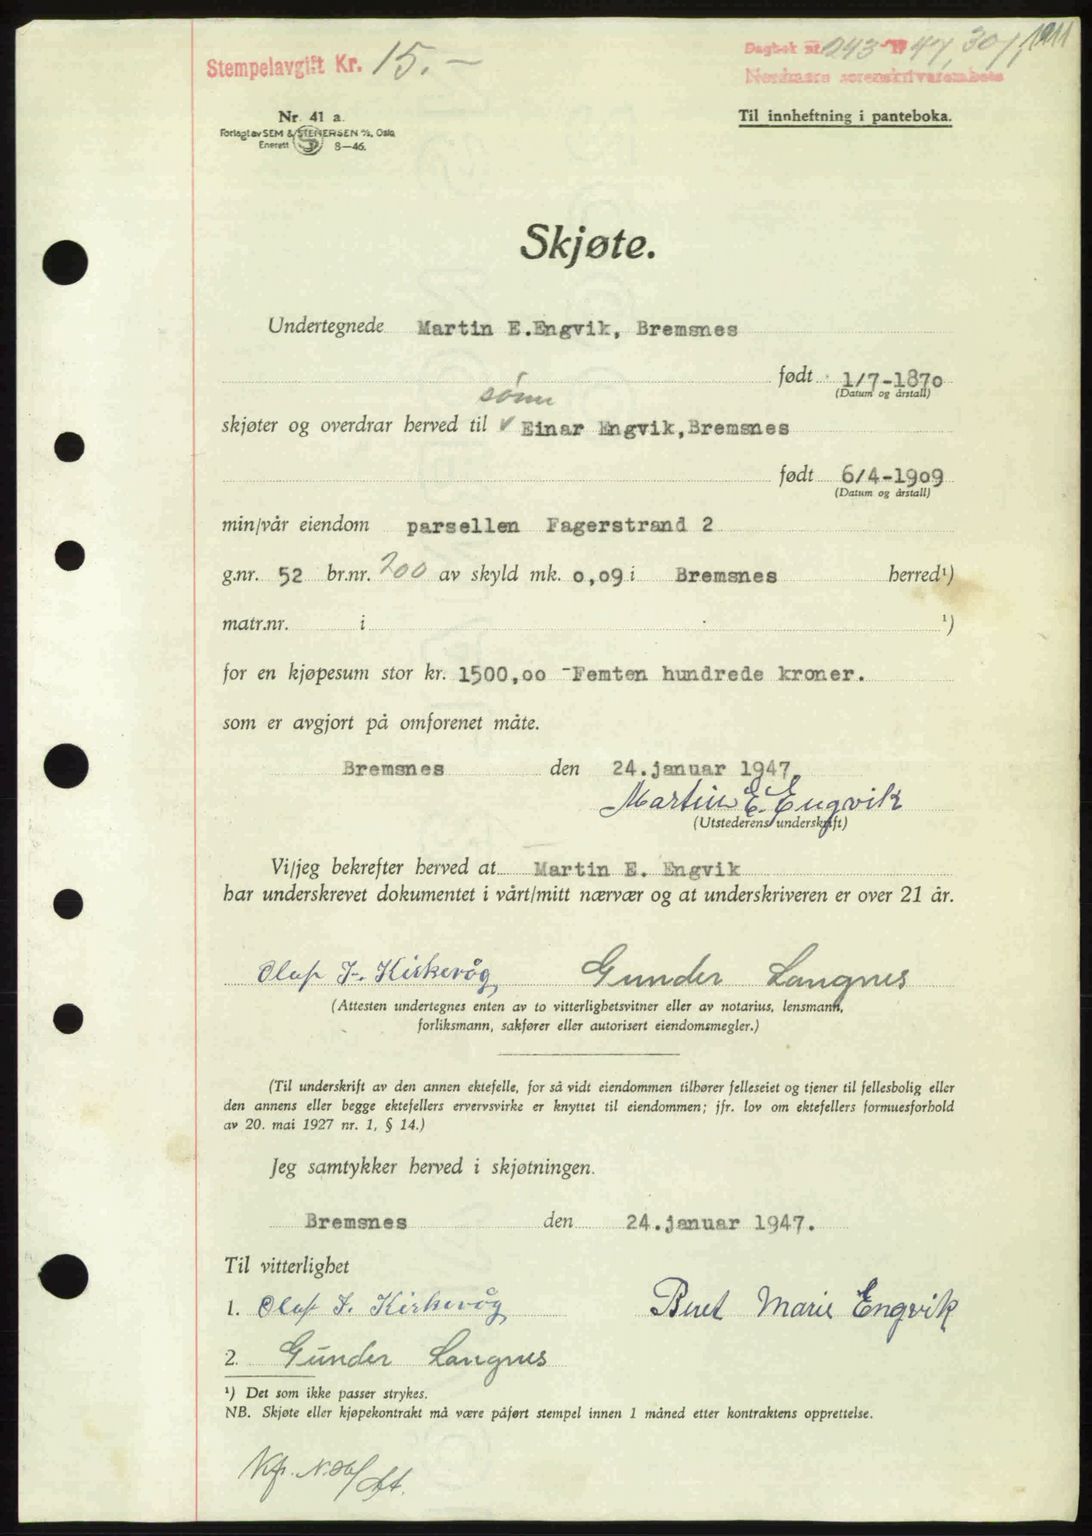 Stempelavgift Kr. 15.—
Dagbok nr. 243 19 47, 30/1, 1911
Nordmøre sorenskriverembete
Nr. 41 a.
Forlagt av SEM & STENERSEN A/S, Oslo
Enerett 8—46.
Til innheftning i panteboka.
Skjøte.
Undertegnede Martin E.Engvik, Bremsnes
født 1/7-1870
(Datum og årstall)
sønn
skjøter og overdrar herved til v Einar Engvik,Bremsnes
født 6/4-1909
(Datum og årstall)
min/vår eiendom parsellen Fagerstrand 2
g.nr. 52 br.nr. 200 av skyld mk. 0,09 i Bremsnes herred¹)
matr.nr. i ¹)
for en kjøpesum stor kr. 1500,00 -Femten hundrede kroner.
som er avgjort på omforenet måte.
Bremsnes den 24.januar 1947.
Martin E. Engvik
(Utstederens underskrift)
Vi/jeg bekrefter herved at Martin E. Engvik
har underskrevet dokumentet i vårt/mitt nærvær og at underskriveren er over 21 år.
Olaf I. Kirkevåg Gunder Langnes
(Attesten undertegnes enten av to vitterlighetsvitner eller av notarius, lensmann,
forliksmann, sakfører eller autorisert eiendomsmegler.)
(Til underskrift av den annen ektefelle, for så vidt eiendommen tilhører felleseiet og tjener til fellesbolig eller
den annens eller begge ektefellers ervervsvirke er knyttet til eiendommen; jfr. lov om ektefellers formuesforhold
av 20. mai 1927 nr. 1, § 14.)
Jeg samtykker herved i skjøtningen.
Bremsnes den 24.januar 1947.
Til vitterlighet
1. Olaf I. Kirkevåg Beret Marie Engvik
2. Gunder Langnes
¹) Det som ikke passer strykes.
NB. Skjøte eller kjøpekontrakt må være påført stempel innen 1 måned etter kontraktens opprettelse.